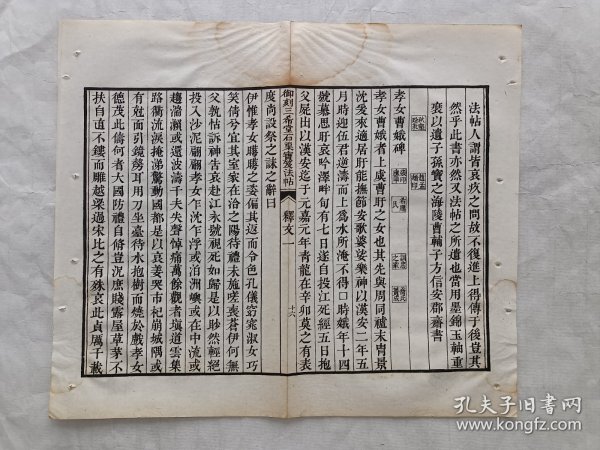 法帖人謂皆哀玖之問故不復進上得傳于後豈其
然乎此書亦然又法帖之所遺也當用墨錦玉軸重
裘以遺子孫寶之海陵曹輔子方信安郡齋書
孝女曹娥碑
孝女曹娥者上虞曹盱之女也其先與周同禩末胄景
沈爰來適居盱能撫節安歌婆娑樂神以漢安二年五
月時迎伍君逆濤而上爲水所淹不得□時娥年十四
號慕思盱哀吟澤畔旬有七日遂自投江死經五日抱
父屍出以漢安迄于元嘉元年青龍在辛卯莫之有表
御刻三希堂石渠寶笈法帖
釋文一
度尚設祭之誄之辭曰
伊惟孝女曄曄之姿偏其返而令色孔儀窈窕淑女巧
笑倩兮宜其室家在洽之陽待禮未施嗟喪蒼伊何無
父孰怙訴神告哀赴江永號視死如歸是以眇然輕絕
投入沙泥翩翩孝女乍沈乍浮或泊洲嶼或在中流或
趨湍瀨或還波濤千夫失聲悼痛萬餘觀者塡道雲集
路衢流淚掩涕驚動國都是以哀姜哭市杞崩城隅或
有尅面引鏡剺耳用刀坐臺待水抱樹而燒於戲孝女
德茂此儔何者大國防禮自脩豈況庶賤露屋草茅不
扶自直不鏤而雕越梁過宋比之有殊哀此貞厲千載
孔夫子旧书网
www.kongfz.com